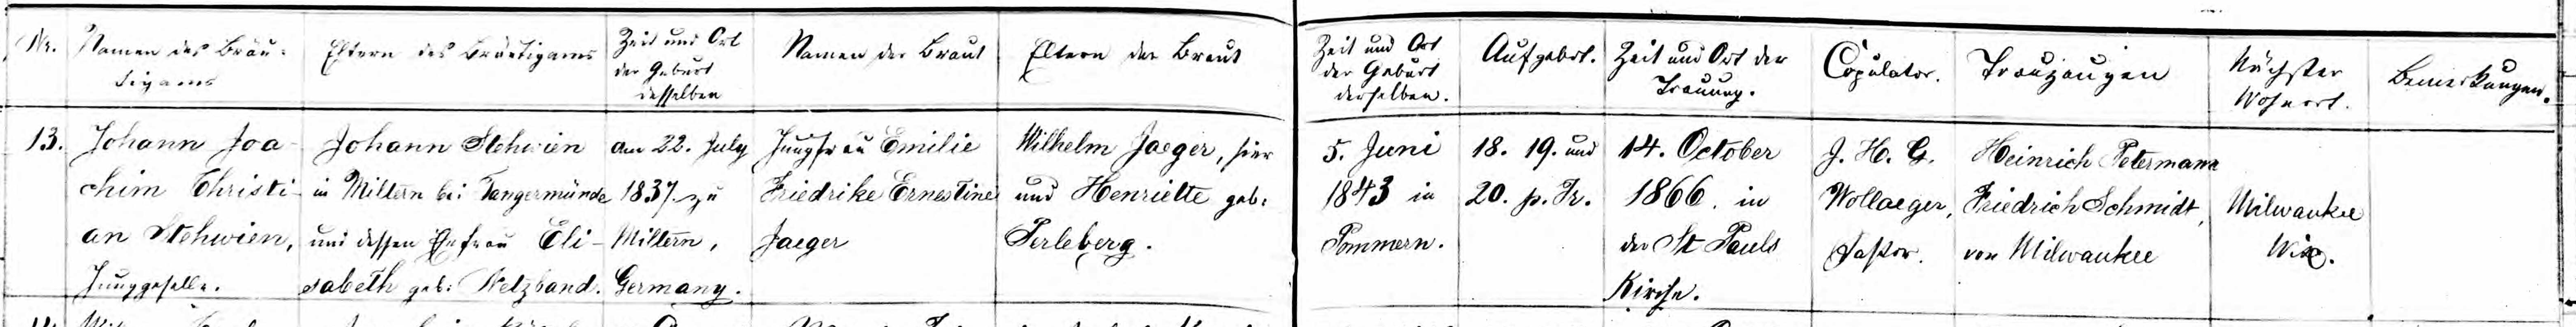 Nr.
Namen des Bräu-
tigams
Eltern des Bräutigams
Zeit und Ort
der Geburt
desselben
Namen der Braut
Eltern der Braut
Zeit und Ort
der Geburt
derselben.
Aufgebot.
Zeit und Ort der
Trauung.
Copulator.
Trauzeugen
Nächster
Wohnort.
Bemerkungen.
13.
Johann Joa-
chim Christi-
an Stehwien,
Junggeselle.
Johann Stehwien
in Miltern bei Tangermünde
und dessen Ehefrau Eli-
sabeth geb: Netzband.
am 22. July
1837. zu
Miltern,
Germany.
Jungfrau Emilie
Friedrike Ernestine
Jaeger
Wilhelm Jaeger, hier
und Henriette geb:
Perleberg.
5. Juni
1843 in
Pommern.
18. 19. und
20. p. Tr.
14. October
1866. in
der St Pauls
Kirche.
J. H. G.
Wollaeger,
Pastor.
Heinrich Petermann
Friedrich Schmidt,
von Milwaukee
Milwaukee
Wis.